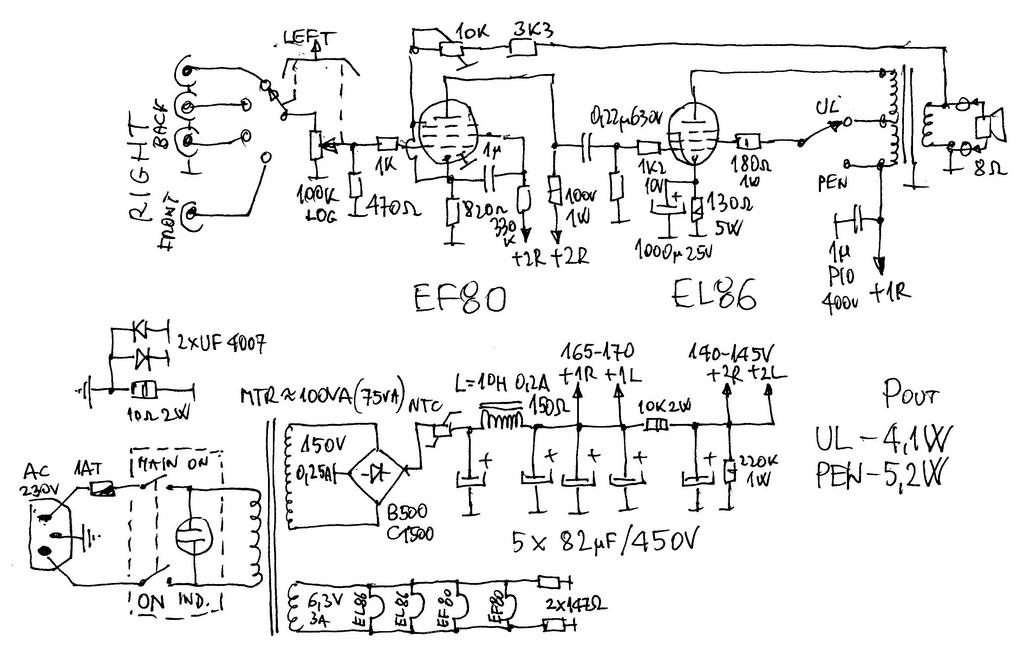 LEFT
10K
3K3
RIGHT
BACK
FRONT
100K
LOG
1K
470Ω
1µ
820Ω
330
K
100k
1W
+2R +2R
EF80
0,22µ630V
1K2
10V
+
1000µ25V
130Ω
5W
180Ω
1W
UL
PEN
8Ω
1µ
PIO
400V
+1R
EL86
2xUF4007
10Ω 2W
MTR≈100VA(75VA)
NTC
L=10H 0,2A
150Ω
165-170
+1R +1L
10K 2W
140-145V
+2R +2L
220K
1W
+ + + + +
5x 82µF/450V
POUT
UL-4,1W
PEN-5,2W
AC
230V
1AT
MAIN ON
ON IND.
150V
0,25A
B500
C1500
6,3V
3A
EL86
EL86
EF80
EF80
2x147Ω